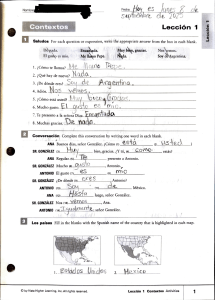 Fecha Hoy es lunes 8 de
septiembre de
Contextos
Lección 1
1 Saludos For each question or expression, write the appropriate answers from the box in each blank.
De nada. Encantada. Muy bien, gracias. Nada.
El gusto es mío. Me llamo Pepe. Nos vemos. Soy de Argentina.
1. ¿Cómo te llamas? Me llamo Pepe.
2. ¿Qué hay de nuevo? Nada.
3. ¿De dónde eres? Soy de Argentina.
4. Adiós. Nos vemos.
5. ¿Cómo está usted? Muy bien, Gracias.
6. Mucho gusto. El gusto es mío.
7. Te presento a la señora Díaz. Encantada
8. Muchas gracias. De nada.
2 Conversación Complete this conversation by writing one word in each blank.
ANA Buenos días, señor González. ¿Cómo está usted?
SR. GONZÁLEZ Muy bien, gracias. ¿Y tú, cómo estás?
ANA Regular. Te presento a Antonio.
SR. GONZÁLEZ Mucho gusto, Antonio.
ANTONIO El gusto es mío.
SR. GONZÁLEZ ¿De dónde eres, Antonio?
ANTONIO Soy de México.
ANA luego, señor González.
SR. GONZÁLEZ Nos vemos, Ana.
ANTONIO Igualmente, señor González.
3 Los países Fill in the blanks with the Spanish name of the country that is highlighted in each map.
1. Estados Unidos 2. México
Lección 1 Contextos Activities 1